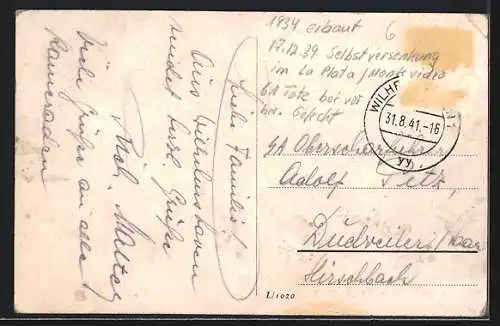 Liebe Familie!
Aus Wilhelmshaven
sendet Euch Grüße
Walter
Viele Grüße an alle
Kameraden
1934 erbaut 6
17.12.39 Selbstversenkung
im La Plata / Montevideo
61 Tote bei vor
her. Gefecht
WILH
31.8.41.-16
yy
SA Oberscharführer
Adolf
Dudweiler / Saar
Hirschbach
L/1020